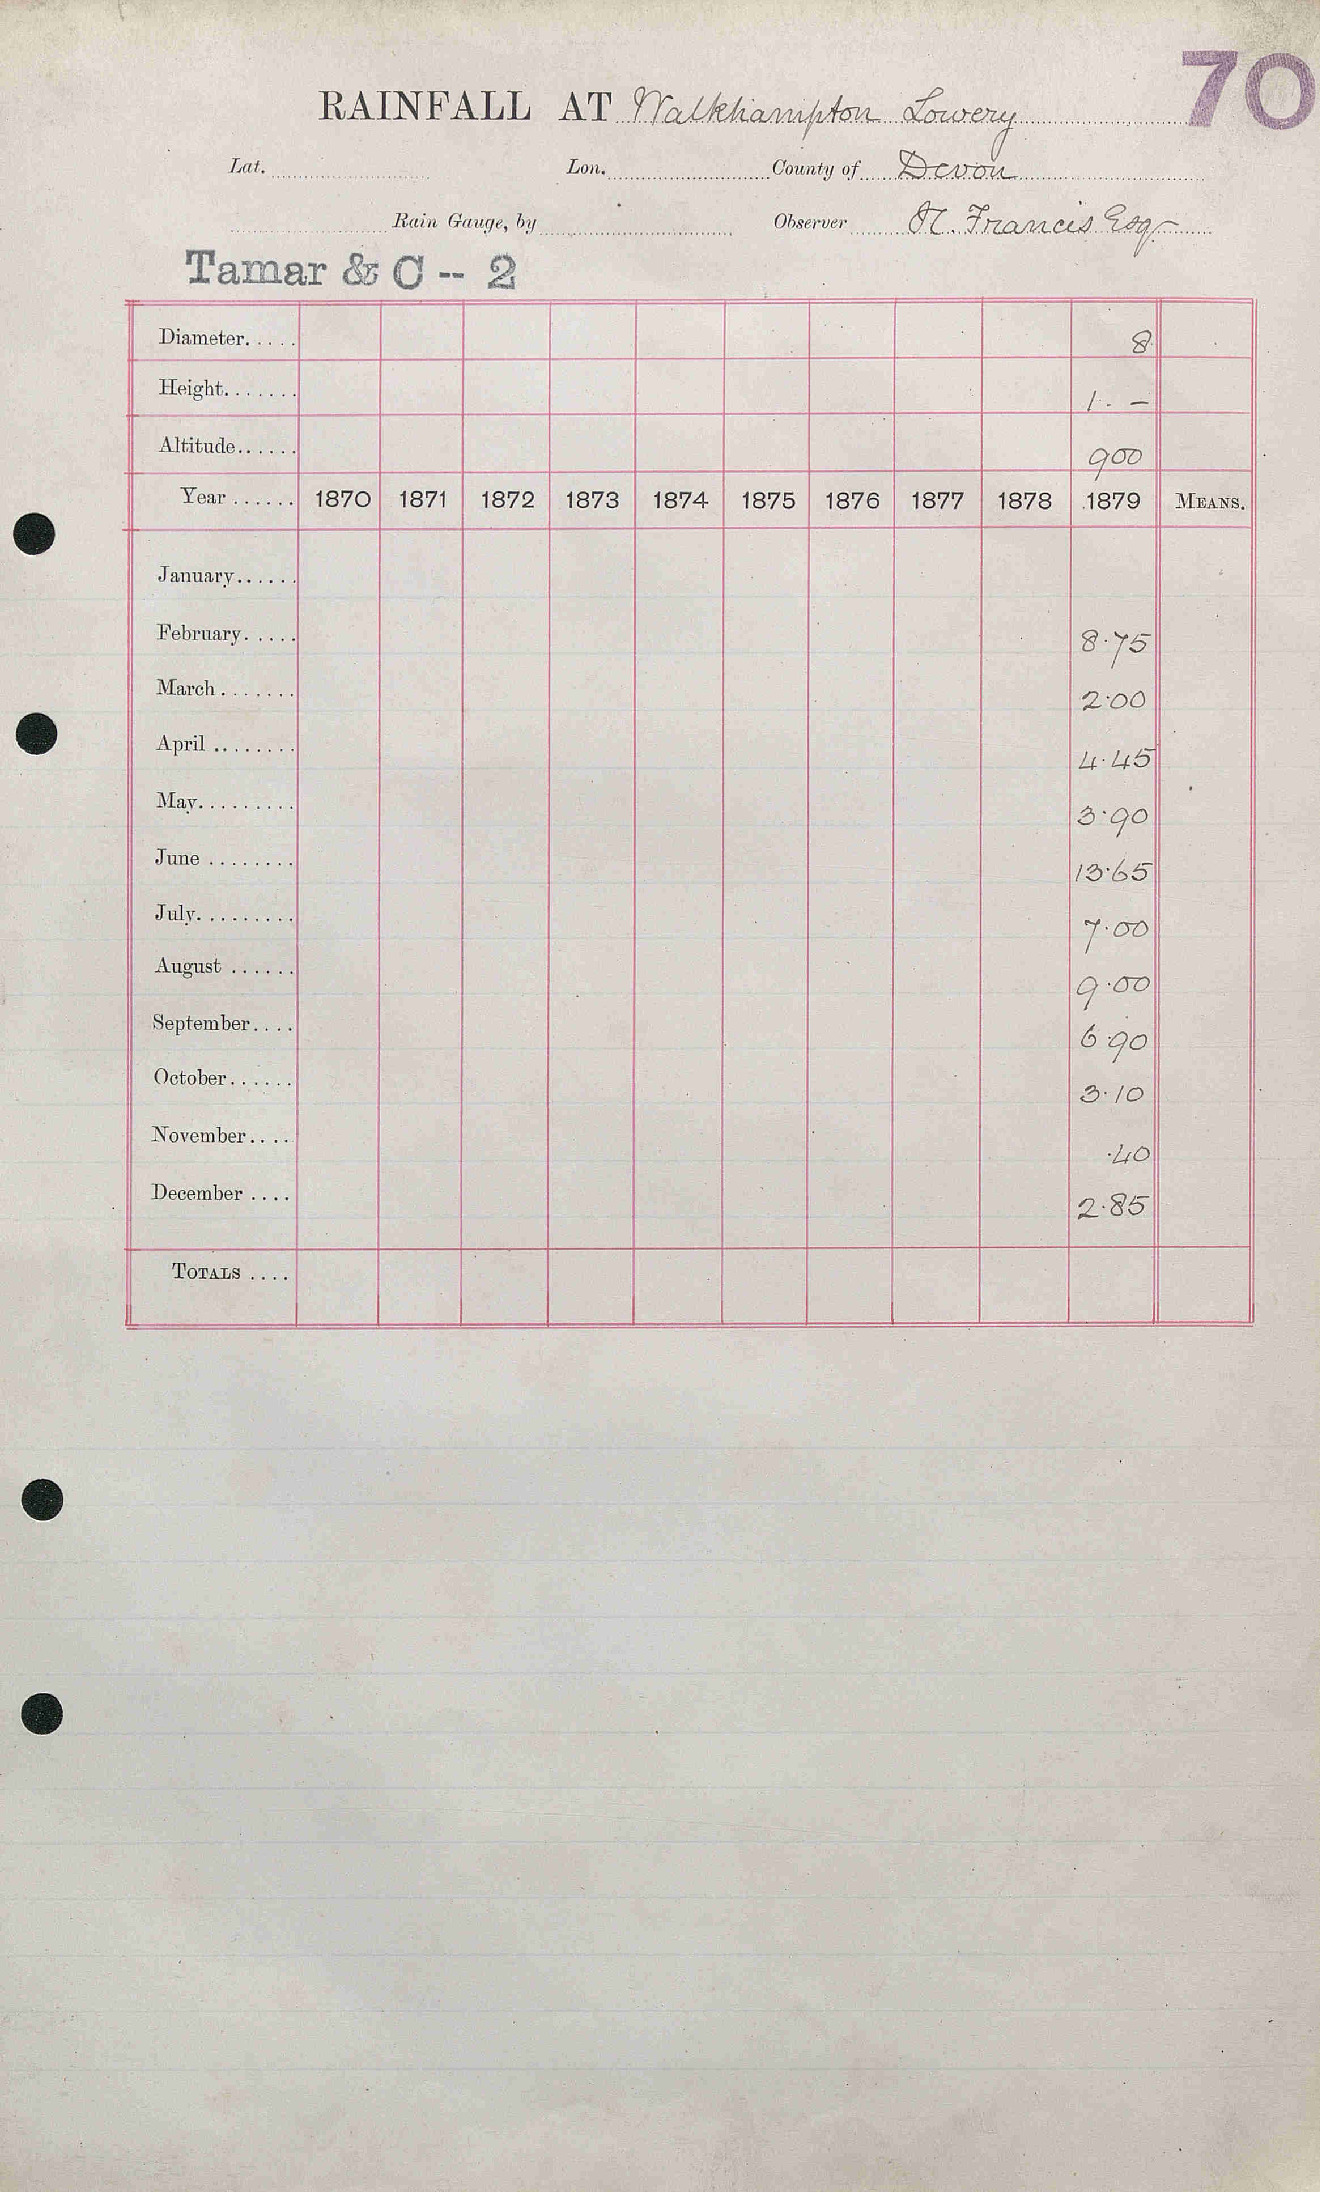 70
RAINFALL AT Walkhampton Lowery
Lat. Lon. County of Devon
Rain Gauge, by Observer Francis Esq.
Tamar & C -- 2
Diameter..... 8
Height....... 1. –
Altitude...... 900
Year ...... 1870 1871 1872 1873 1874 1875 1876 1877 1878 1879 MEANS.
January......
February..... 8.75
March ....... 2.00
April ........ 4.45
May......... 3.90
June ........ 13.65
July......... 7.00
August ...... 9.00
September.... 6.90
October...... 3.10
November.... .40
December .... 2.85
TOTALS ....